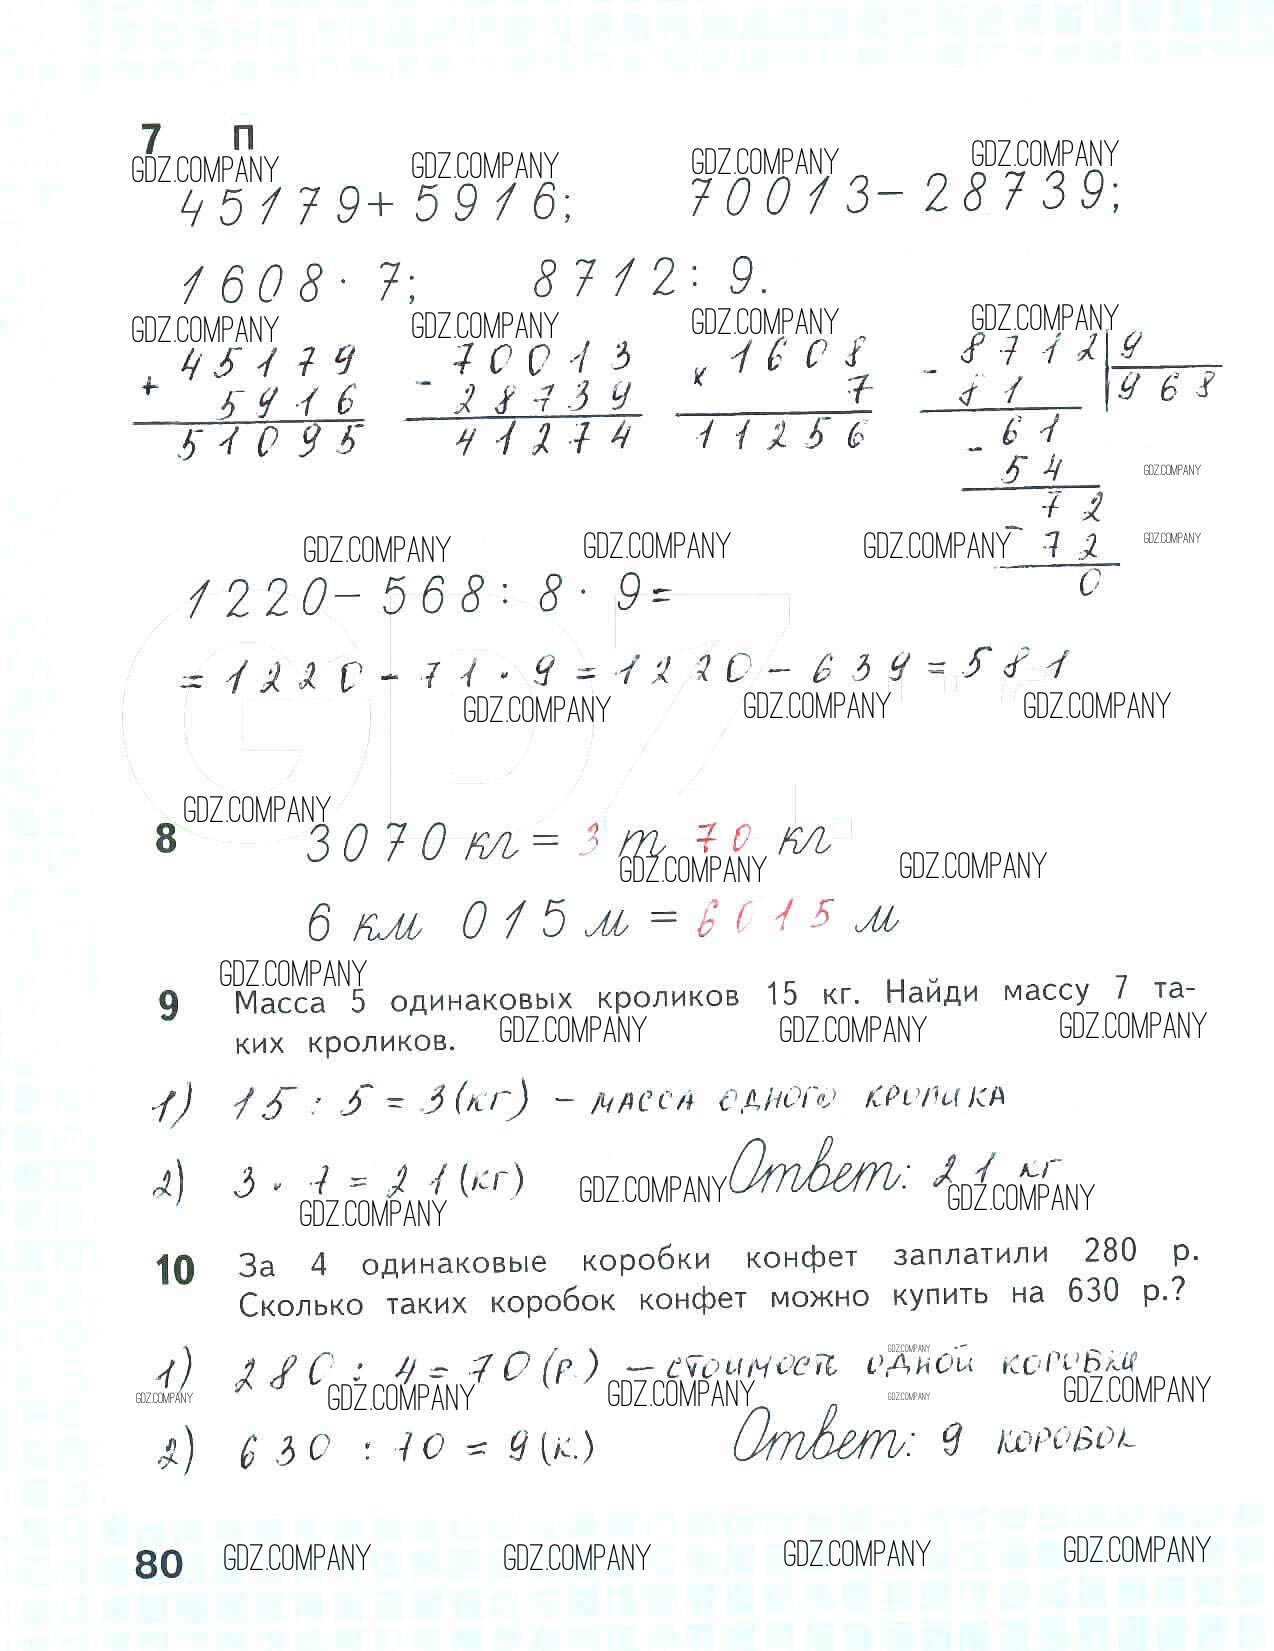 7 П
GDZ.COMPANY GDZ.COMPANY GDZ.COMPANY GDZ.COMPANY
45179+5916; 70013-28739;
1608·7; 8712:9.
GDZ.COMPANY GDZ.COMPANY GDZ.COMPANY GDZ.COMPANY
45179 70013 1608 8712 9
+ 5916 - 28739 × 7 - 81 968
51095 41274 11256 61
- 54 GDZ.COMPANY
72
GDZ.COMPANY GDZ.COMPANY GDZ.COMPANY - 72 GDZ.COMPANY
0
1220-568:8·9=
=1220-71·9=1220-639=581
GDZ.COMPANY GDZ.COMPANY GDZ.COMPANY
GDZ
GDZ.COMPANY
8 3070 кг = 3 т 70 кг
GDZ.COMPANY GDZ.COMPANY
6 км 015 м = 6015 м
GDZ.COMPANY
9 Масса 5 одинаковых кроликов 15 кг. Найди массу 7 та-
ких кроликов. GDZ.COMPANY GDZ.COMPANY GDZ.COMPANY
1) 15:5=3(кг) - масса одного кролика
2) 3·7=21(кг) GDZ.COMPANY Ответ: 21 кг
GDZ.COMPANY GDZ.COMPANY
10 За 4 одинаковые коробки конфет заплатили 280 р.
Сколько таких коробок конфет можно купить на 630 р.?
GDZ.COMPANY
1) 280:4=70(р.) - стоимость одной коробки
GDZ.COMPANY GDZ.COMPANY GDZ.COMPANY GDZ.COMPANY GDZ.COMPANY
2) 630:70=9(к.) Ответ: 9 коробок
80 GDZ.COMPANY GDZ.COMPANY GDZ.COMPANY GDZ.COMPANY